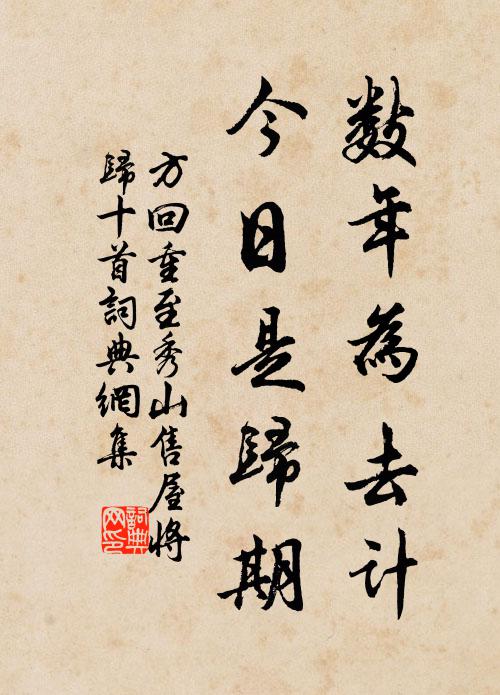 数年為去計
今日是歸期
方回重至秀山售屋將
歸十首詞典網集
詞典
网印